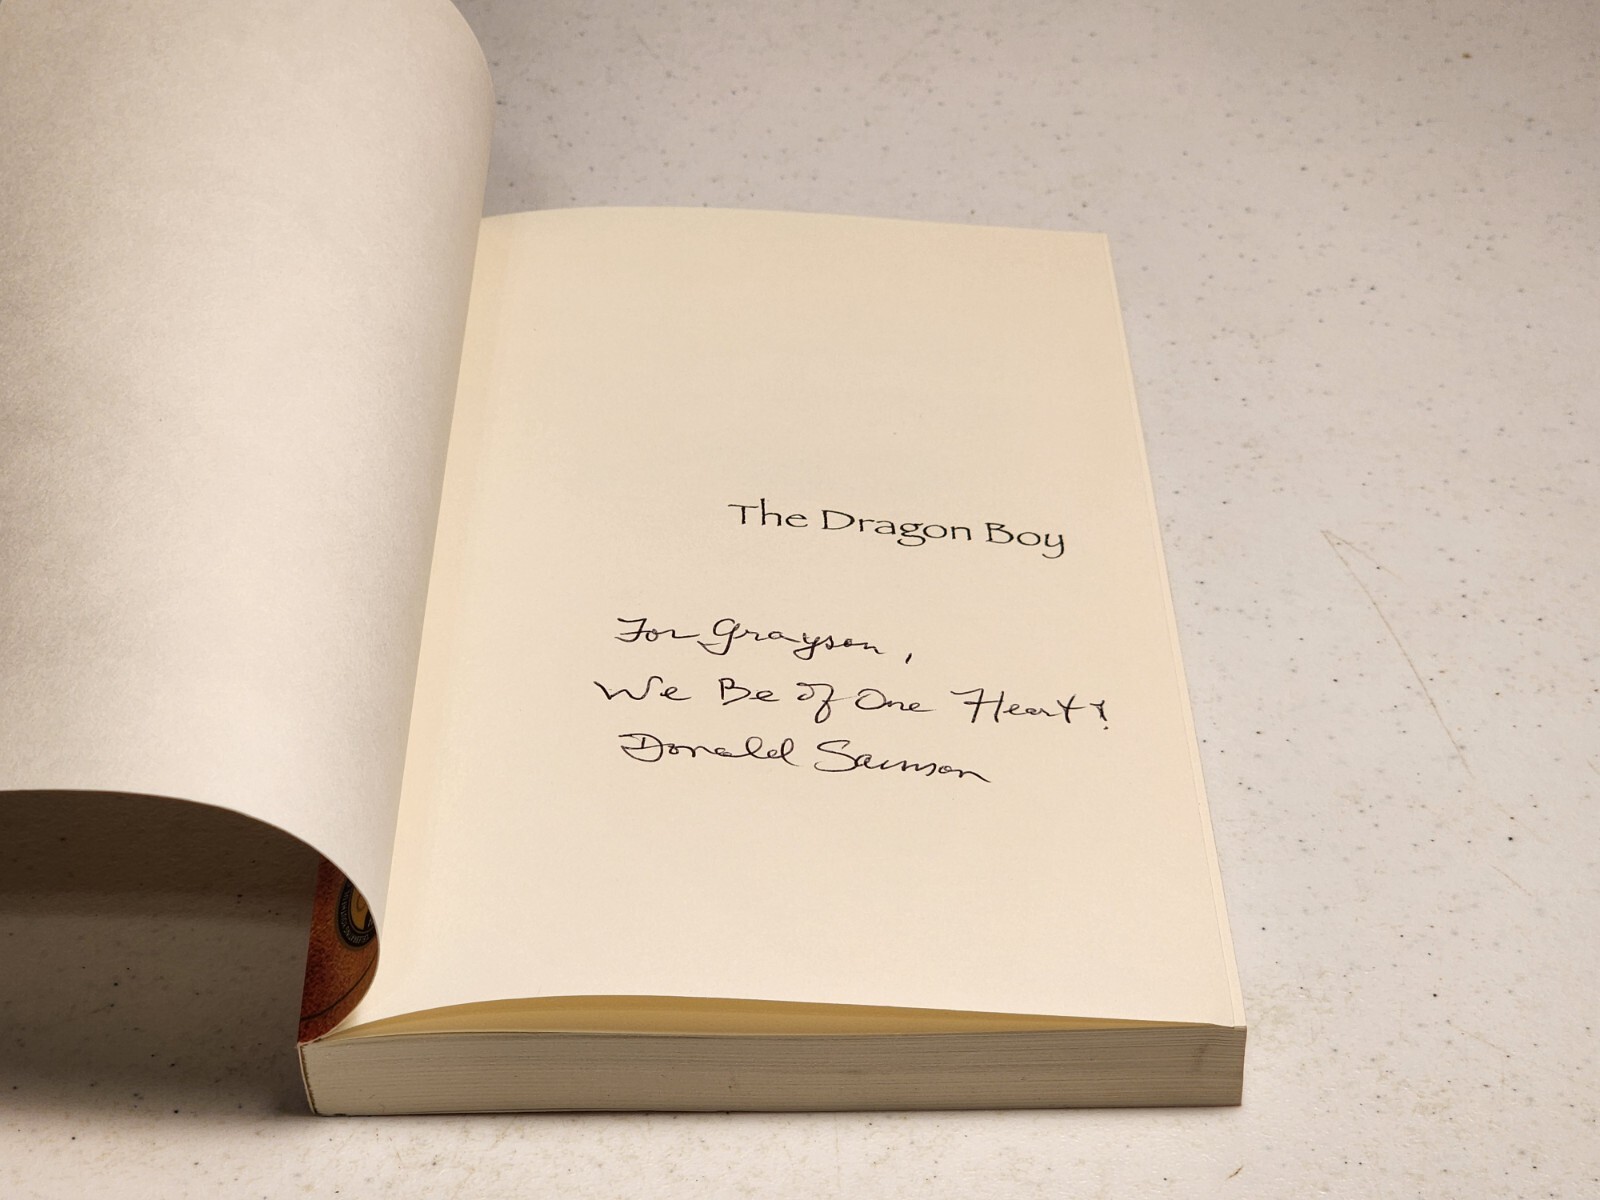 The Dragon Boy
For Grayson,
We Be of One Heart!
Donald Samson